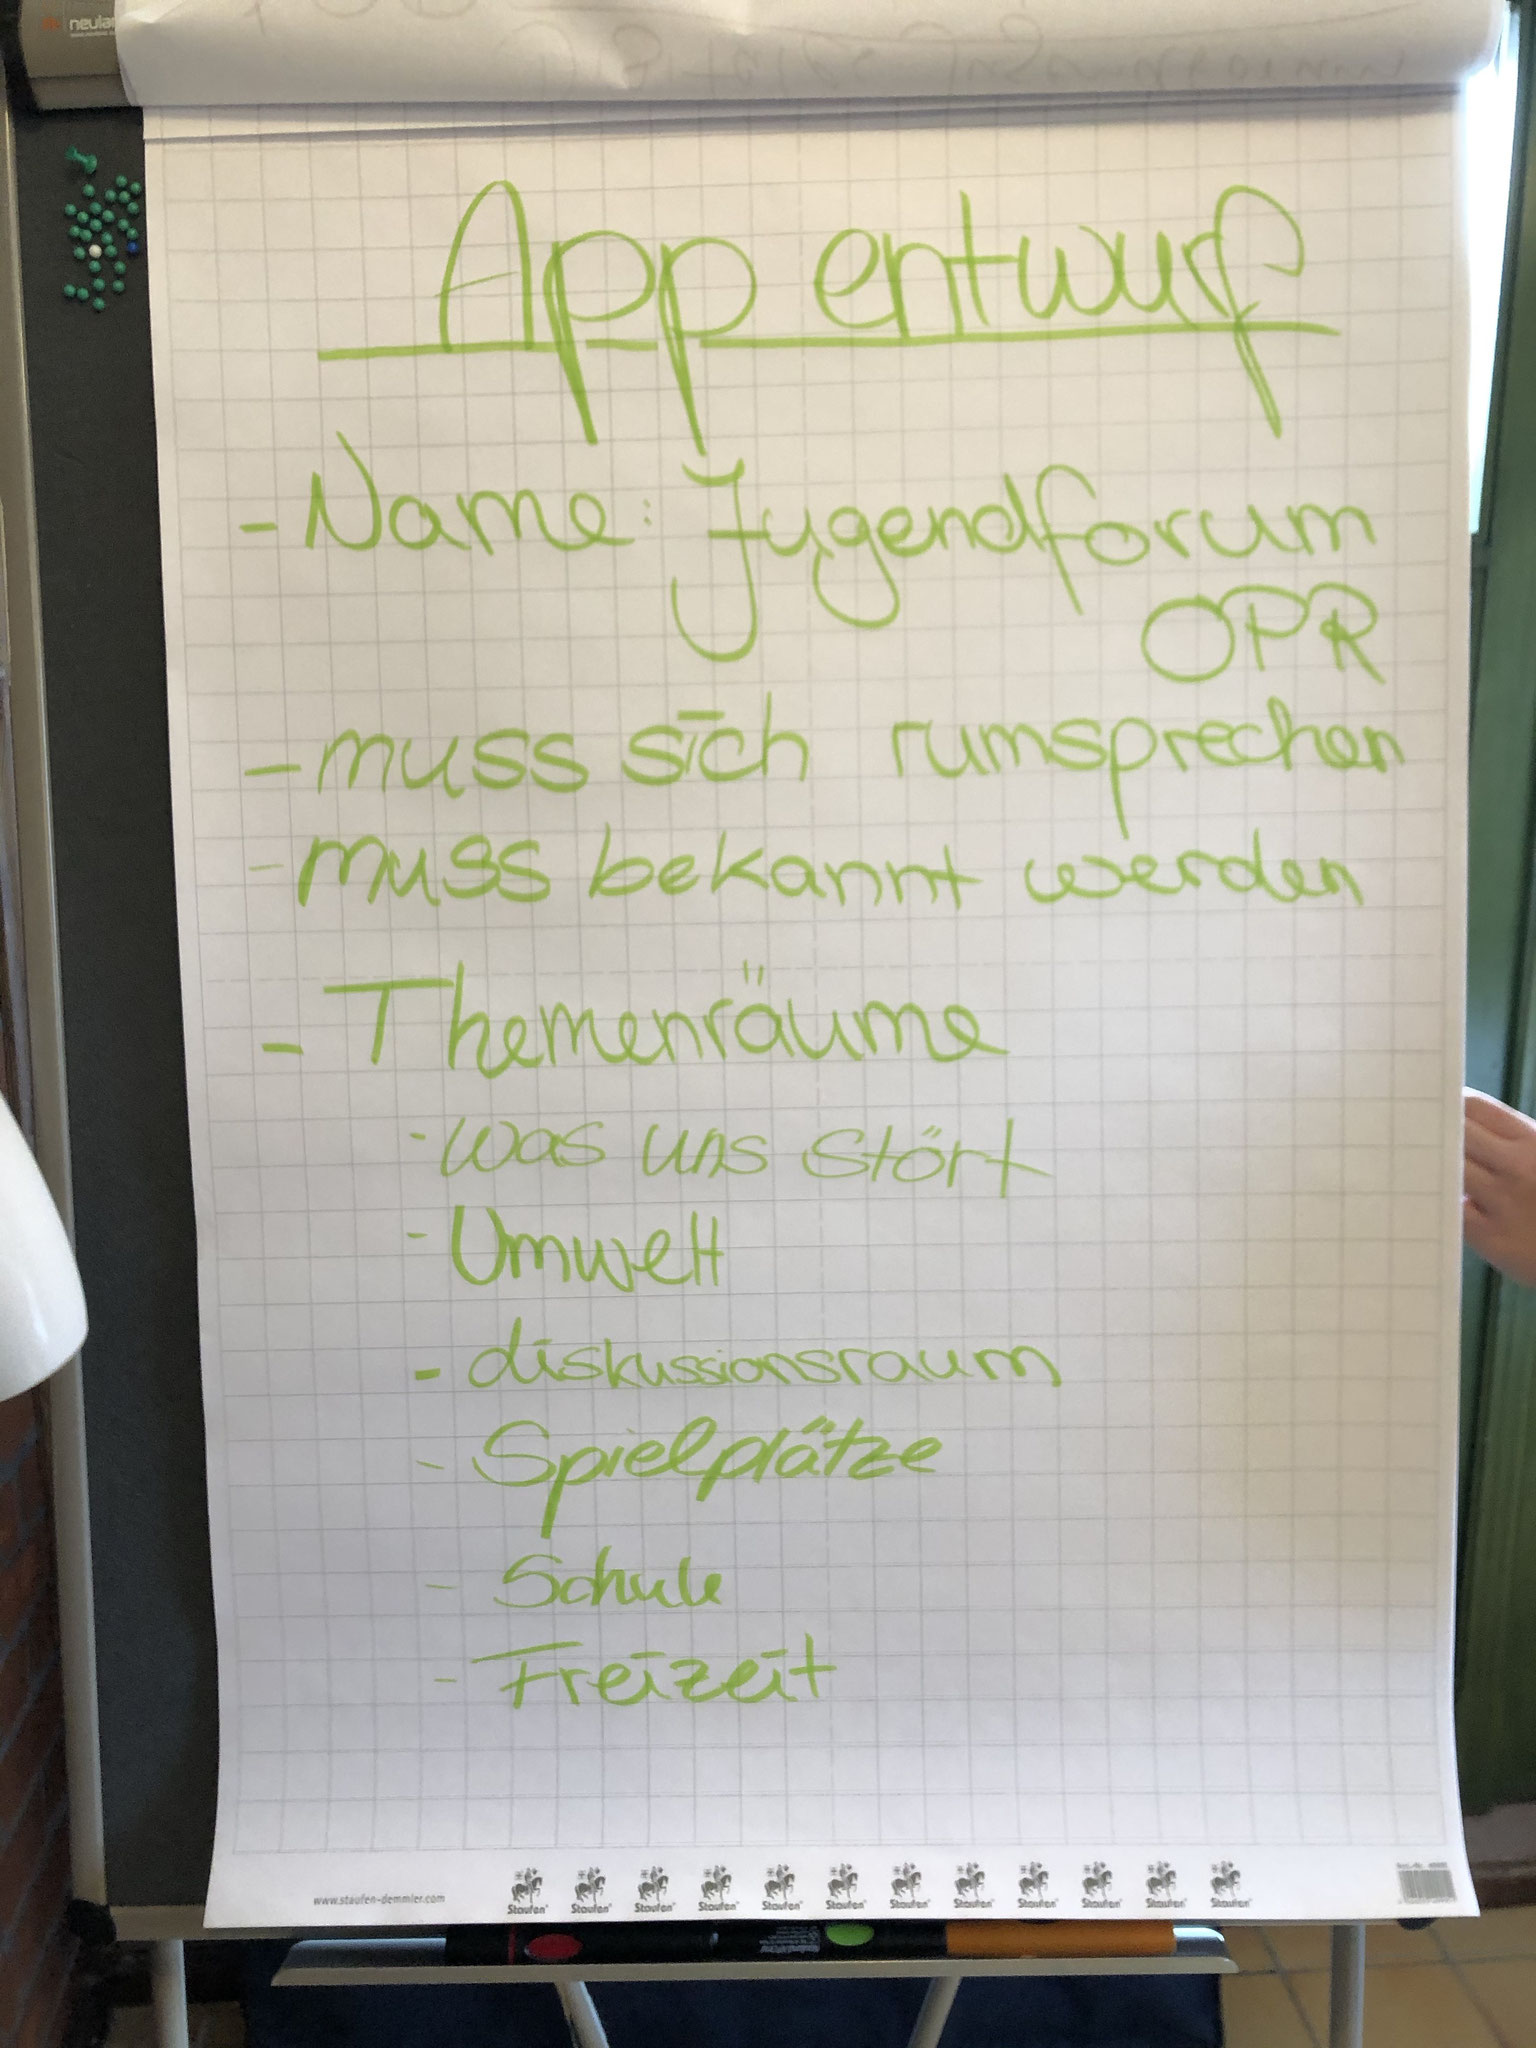 neulan
App entwurf
- Name: Jugendforum
OPR
- muss sich rumsprechen
- muss bekannt werden
- Themenräume
- was uns stört
- Umwelt
- diskussionsraum
- Spielplätze
- Schule
- Freizeit
www.staufen-demmler.com
Staufen Staufen Staufen Staufen Staufen Staufen Staufen Staufen Staufen Staufen Staufen Staufen